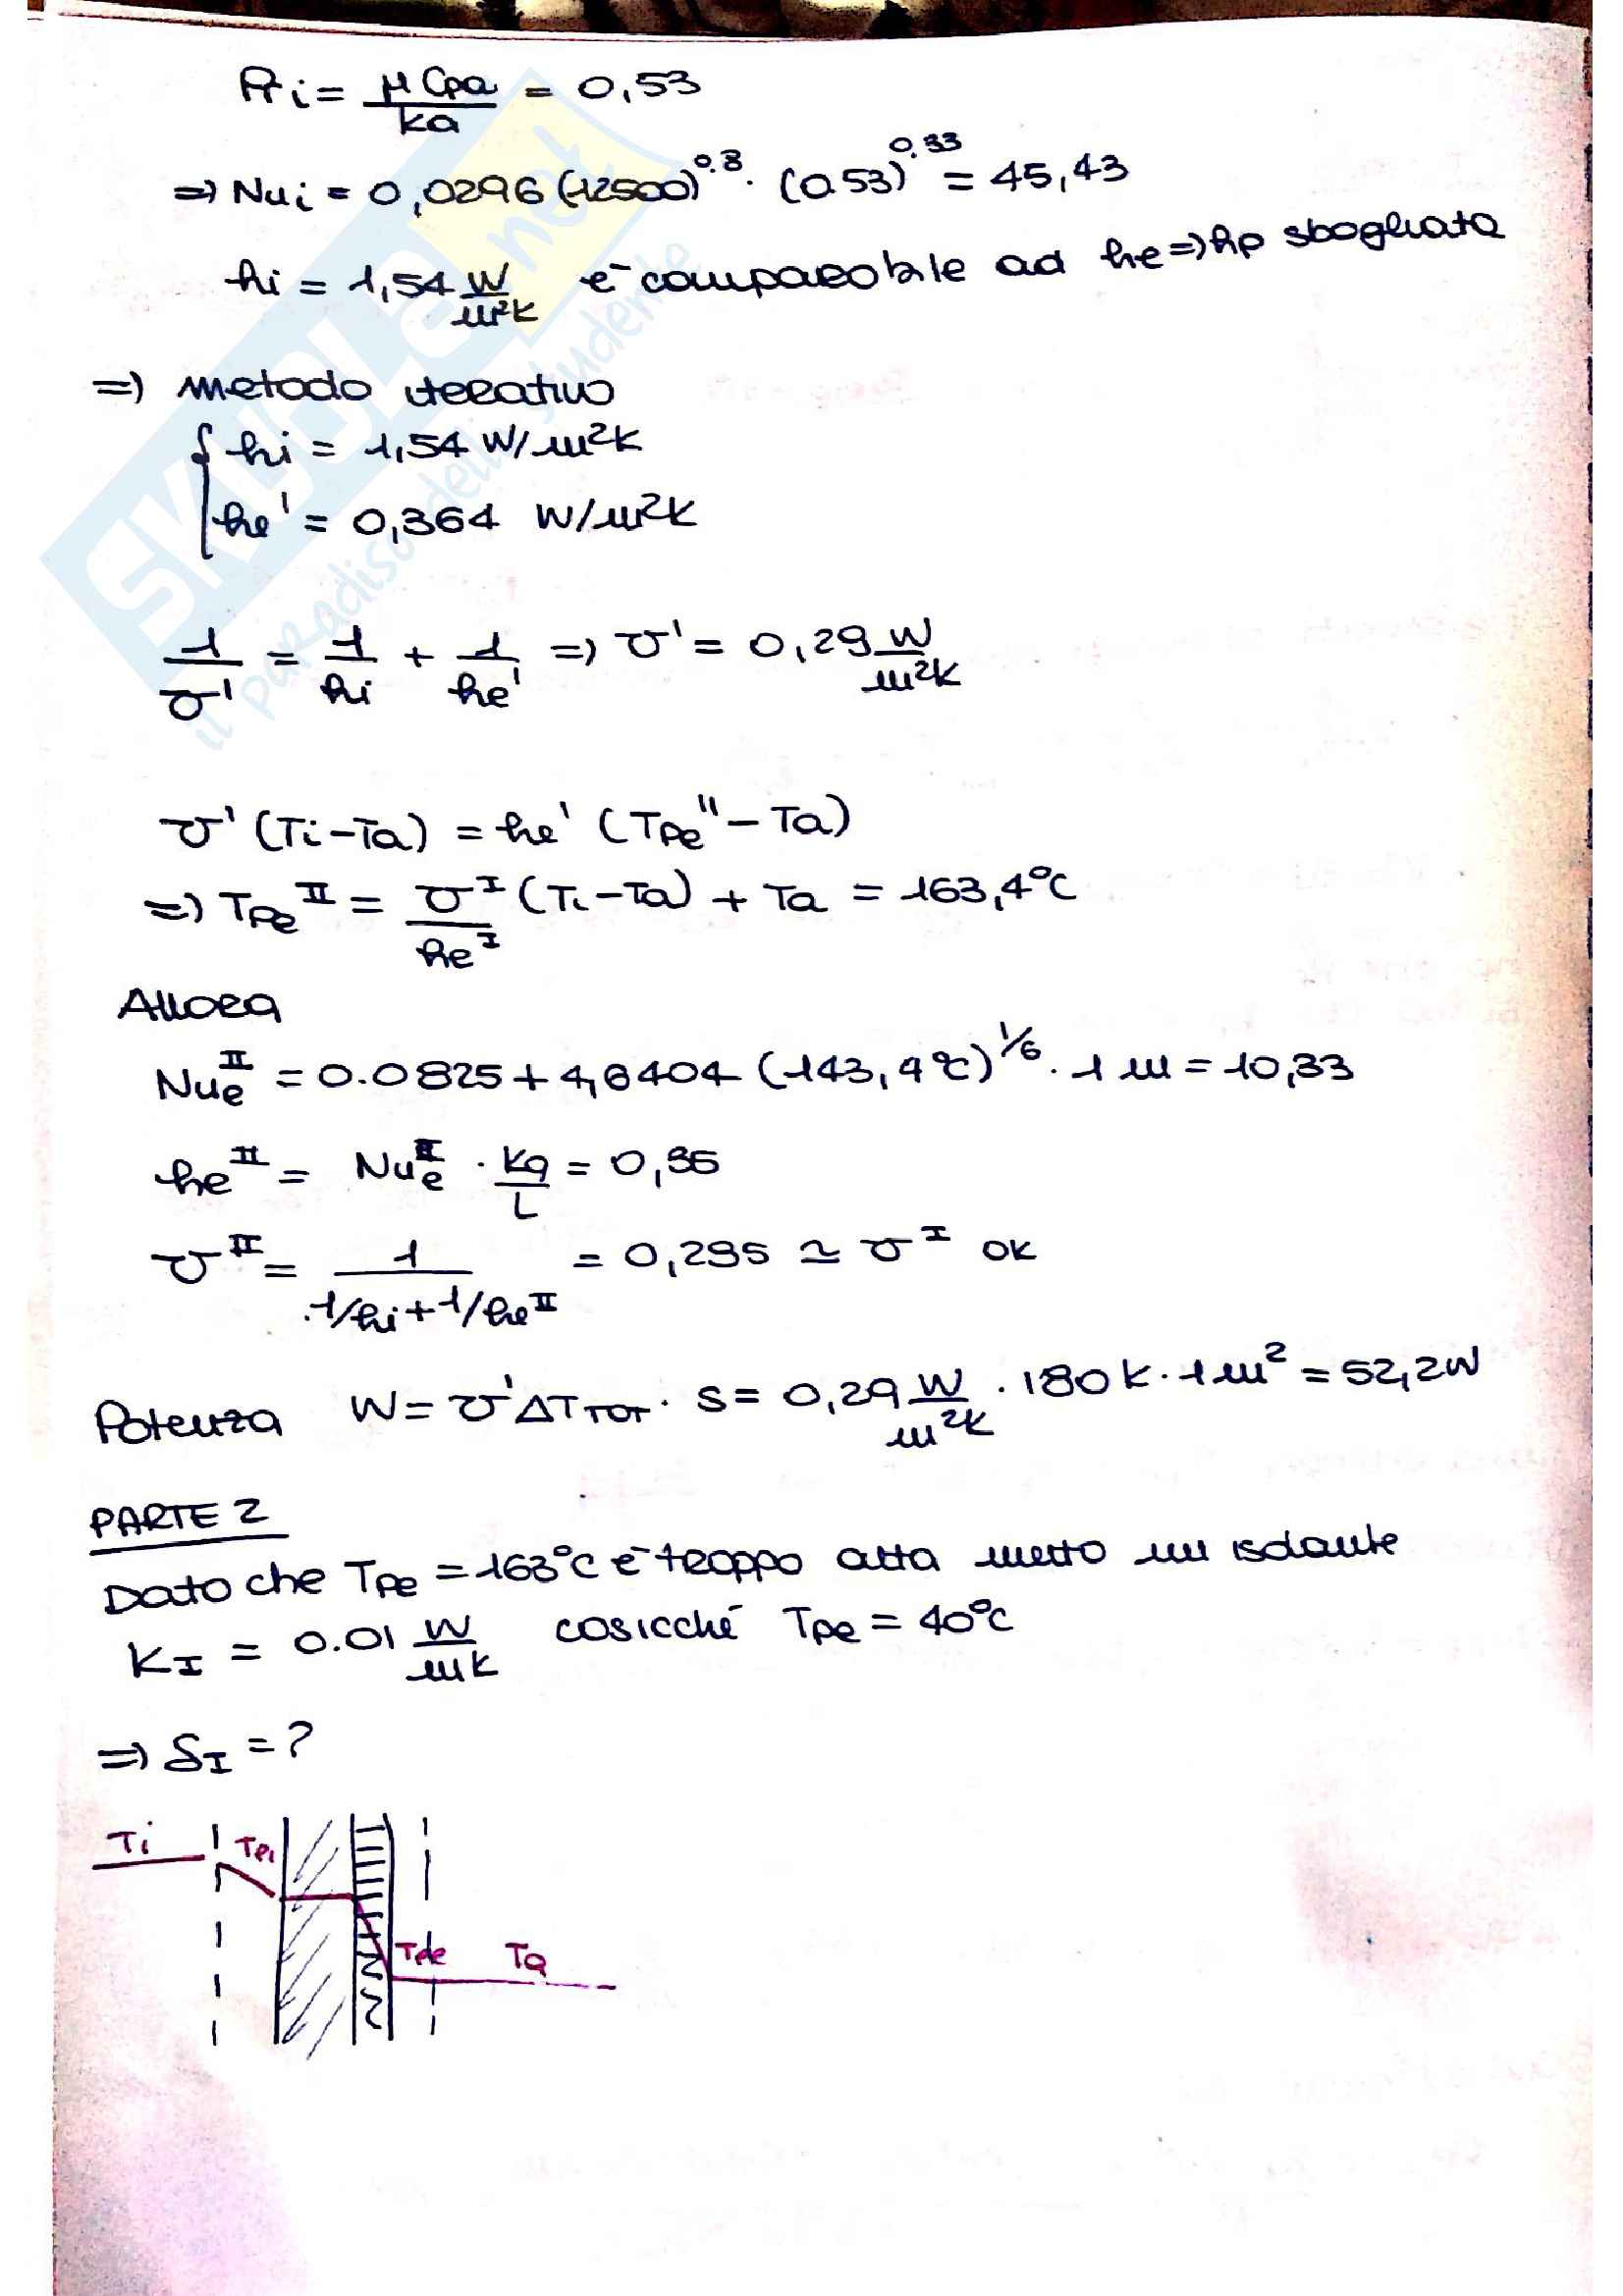 Pri = μ Cpa / ka = 0,53
=> Nui = 0,0296 (12500)^0.8 · (0.53)^0.33 = 45,43
hi = 1,54 W/m²K è comparabile ad he => hp sbagliata
=> metodo iterativo
{ hi = 1,54 W/m²K
he' = 0,364 W/m²K
1/U' = 1/hi + 1/he' => U' = 0,29 W/m²K
U' (Ti - Ta) = he' (Tpe'' - Ta)
=> Tpe^II = U^I/he^I (Ti - Ta) + Ta = 163,4°C
Allora
Nue^II = 0.0825 + 4,6404 (143,4°C)^1/6 · 1 m = 10,33
he^II = Nue^II · ka/L = 0,36
U^II = 1 / (1/hi + 1/he^II) = 0,295 ≃ U^I ok
Potenza W = U' ΔTTOT · S = 0,29 W/m²K · 180 K · 1 m² = 52,2 W
PARTE 2
Dato che Tpe = 163°C è troppo alta metto un isolante
KI = 0.01 W/mK cosicché Tpe = 40°C
=> SI = ?
Ti Tpi
Tpe Ta
SKUOLA.net
il paradiso dello studente